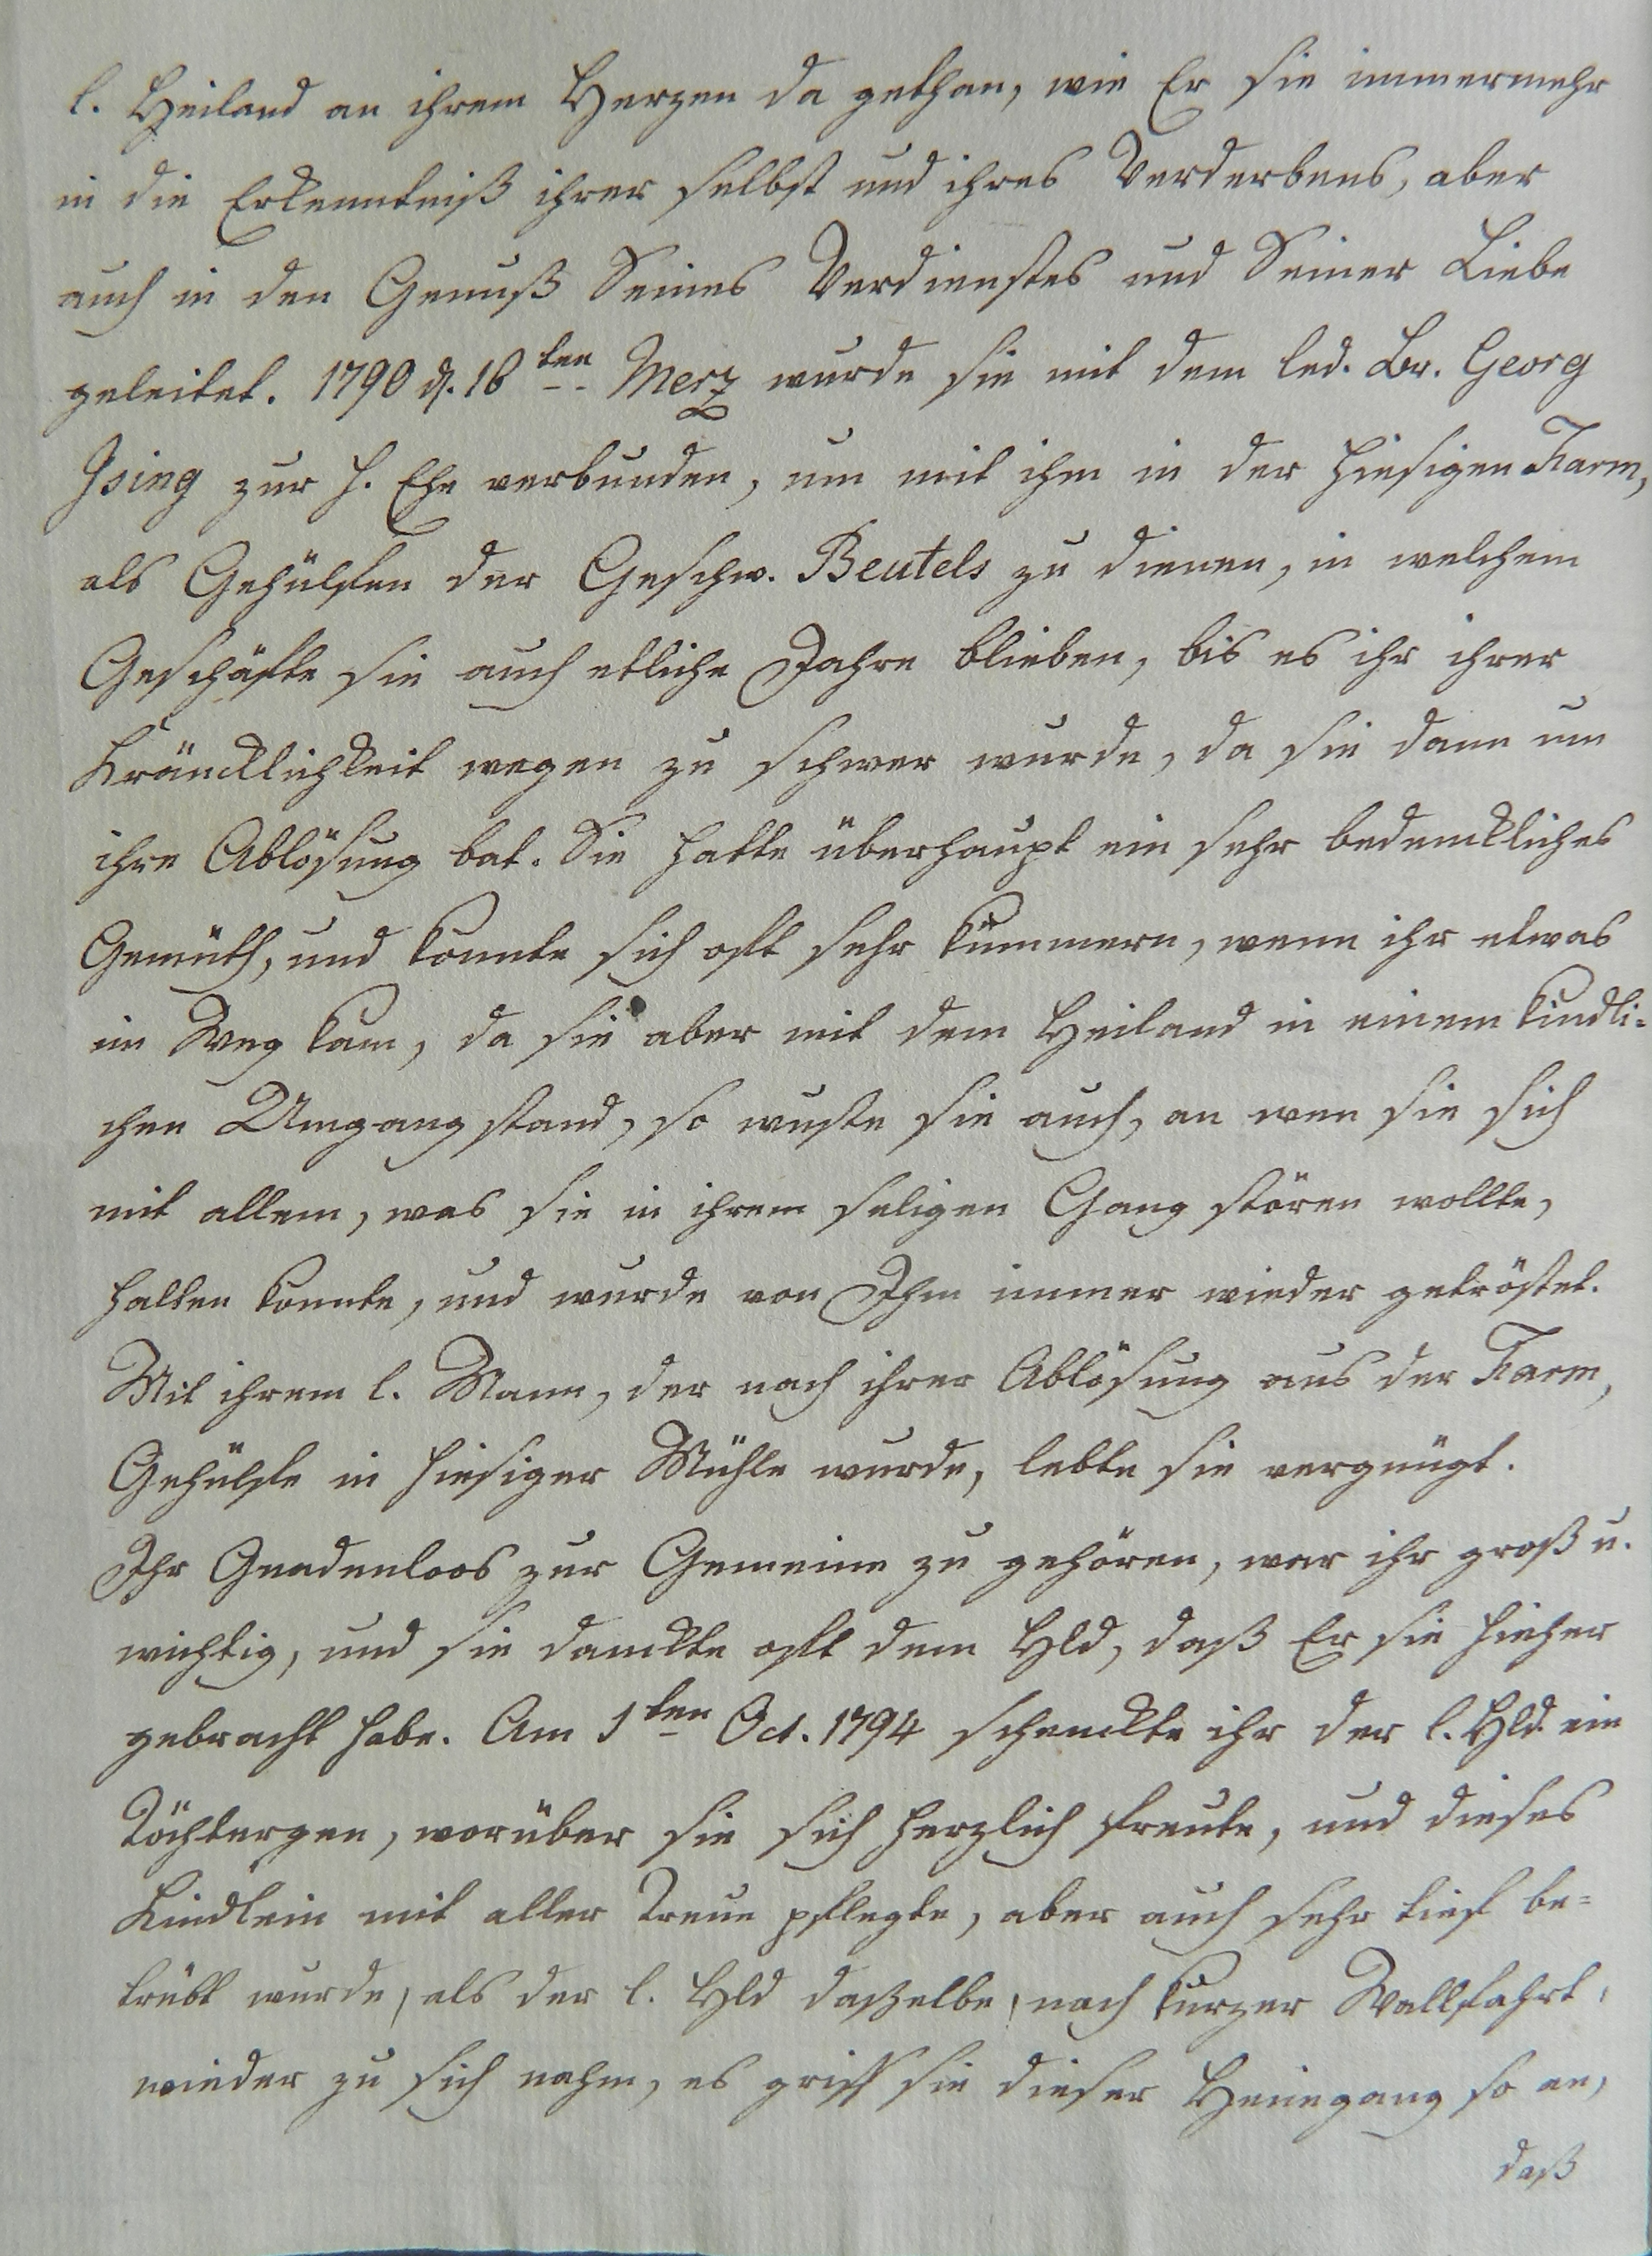 l. Heiland an ihrem Herzen da gethan, wie Er sie immermehr
in die Erkenntniß ihrer selbst und ihres Verderbens, aber
auch in den Genuß Seines Verdienstes und Seiner Liebe
geleitet. 1790 d. 18ten Merz wurde sie mit dem led. Br. Georg
Ising zur h. Ehe verbunden, um mit ihm in der hiesigen Farm,
als Gehülfen der Geschw. Beutels zu dienen, in welchem
Geschäfte sie auch etliche Jahre blieben, bis es ihr ihrer
Kräncklichkeit wegen zu schwer wurde, da sie dann um
ihre Ablösung bat. Sie hatte überhaupt ein sehr bedenckliches
Gemüth, und konnte sich oft sehr kümmern, wenn ihr etwas
im Weg kam, da sie aber mit dem Heiland in einem kindli-
chen Umgang stand, so wuste sie auch, an wen sie sich
mit allem, was sie in ihrem seligen Gang stören wollte,
halten konnte, und wurde von Ihm immer wieder getröstet.
Mit ihrem l. Mann, der nach ihrer Ablösung aus der Farm,
Gehülfe in hiesiger Mühle wurde, lebte sie vergnügt.
Ihr Gnadenloos zur Gemeine zu gehören, war ihr groß u.
wichtig, und sie danckte oft dem Hld, daß Er sie hieher
gebracht habe. Am 1ten Oct. 1794 schenckte ihr der l. Hld. ein
Töchtergen, worüber sie sich herzlich freute, und dieses
Kindlein mit aller Treue pflegte, aber auch sehr tief be-
trübt wurde, als der l. Hld daßelbe, nach kurzer Wallfahrt,
wieder zu sich nahm, es griff sie dieser Heimgang so an,
daß